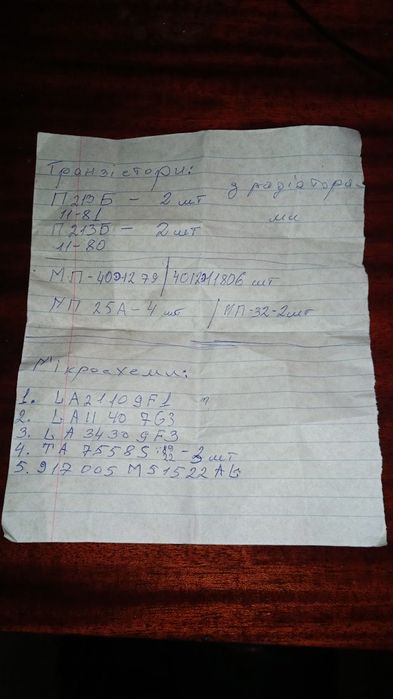 Транзістори:
П213Б - 2 шт з радіатора-
11-81 ми
П213Б - 2 шт
11-80
МП-40 шт
МП 25А - 4 шт / МП-32-2 шт
Мікросхеми:
1. LA21109F1
2. LA1140 7G3
3. LA 3430 9F3
4. TA 7558S - шт
5. 917005 M51522AL